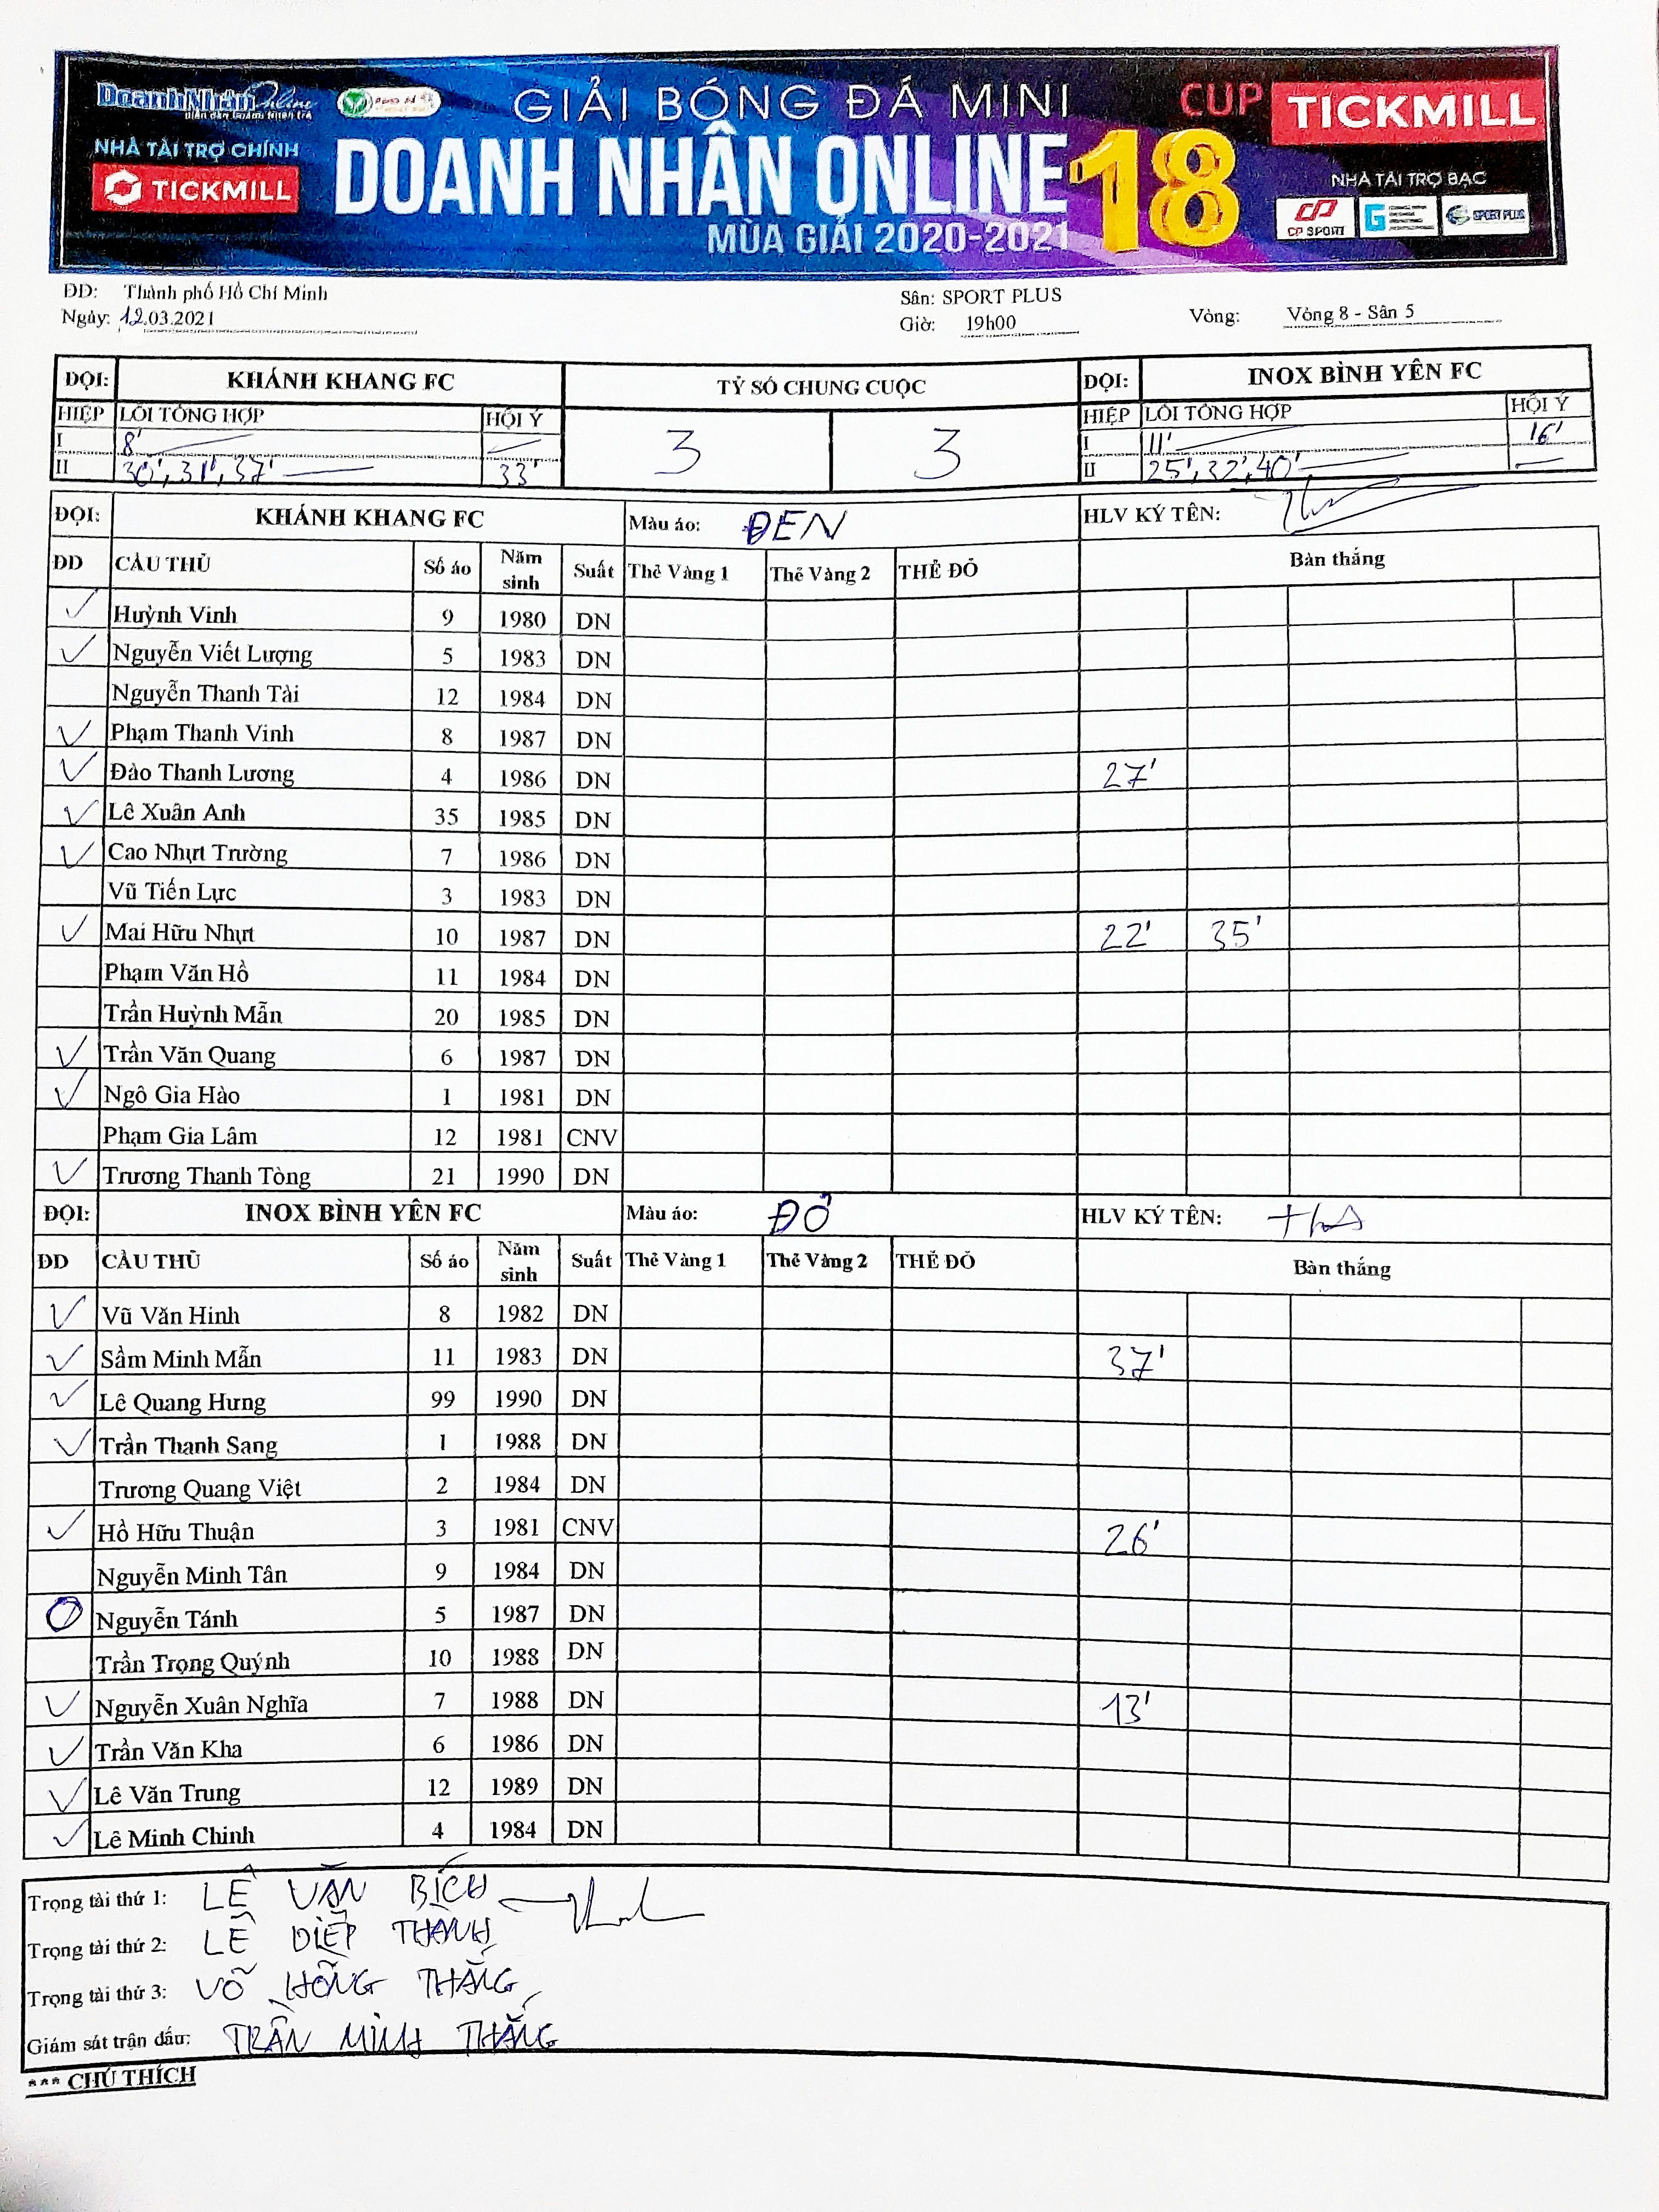 DoanhNhânOnline GIẢI BÓNG ĐÁ MINI CUP TICKMILL
NHÀ TÀI TRỢ CHÍNH DOANH NHÂN ONLINE 18 NHÀ TÀI TRỢ BẠC
TICKMILL MÙA GIẢI 2020-2021 CP SPORT SPORT PLUS
ĐD: Thành phố Hồ Chí Minh Sân: SPORT PLUS
Ngày: 12.03.2021 Giờ: 19h00 Vòng: Vòng 8 - Sân 5
ĐỘI: KHÁNH KHANG FC TỶ SỐ CHUNG CUỘC ĐỘI: INOX BÌNH YÊN FC
HIỆP LỖI TỔNG HỢP HỘI Ý 3 3 HIỆP LỖI TỔNG HỢP HỘI Ý
I 8' I 11' 16'
II 30', 31', 37' 33' II 25', 32', 40'
ĐỘI: KHÁNH KHANG FC Màu áo: ĐEN HLV KÝ TÊN:
ĐD CẦU THỦ Số áo Năm sinh Suất Thẻ Vàng 1 Thẻ Vàng 2 THẺ ĐỎ Bàn thắng
Huỳnh Vinh 9 1980 DN
Nguyễn Viết Lượng 5 1983 DN
Nguyễn Thanh Tài 12 1984 DN
Phạm Thanh Vinh 8 1987 DN
Đào Thanh Lương 4 1986 DN 27'
Lê Xuân Anh 35 1985 DN
Cao Nhựt Trường 7 1986 DN
Vũ Tiến Lực 3 1983 DN
Mai Hữu Nhựt 10 1987 DN 22' 35'
Phạm Văn Hồ 11 1984 DN
Trần Huỳnh Mẫn 20 1985 DN
Trần Văn Quang 6 1987 DN
Ngô Gia Hào 1 1981 DN
Phạm Gia Lâm 12 1981 CNV
Trương Thanh Tòng 21 1990 DN
ĐỘI: INOX BÌNH YÊN FC Màu áo: ĐỎ HLV KÝ TÊN:
ĐD CẦU THỦ Số áo Năm sinh Suất Thẻ Vàng 1 Thẻ Vàng 2 THẺ ĐỎ Bàn thắng
Vũ Văn Hinh 8 1982 DN
Sầm Minh Mẫn 11 1983 DN 37'
Lê Quang Hưng 99 1990 DN
Trần Thanh Sang 1 1988 DN
Trương Quang Việt 2 1984 DN
Hồ Hữu Thuận 3 1981 CNV 26'
Nguyễn Minh Tân 9 1984 DN
Nguyễn Tánh 5 1987 DN
Trần Trọng Quýnh 10 1988 DN
Nguyễn Xuân Nghĩa 7 1988 DN 13'
Trần Văn Kha 6 1986 DN
Lê Văn Trung 12 1989 DN
Lê Minh Chinh 4 1984 DN
Trọng tài thứ 1: LÊ VĂN BÍCH
Trọng tài thứ 2: LÊ DIỆP THÀNH
Trọng tài thứ 3: VÕ HỒNG THẮNG
Giám sát trận đấu: TRẦN MINH THẮNG
*** CHÚ THÍCH